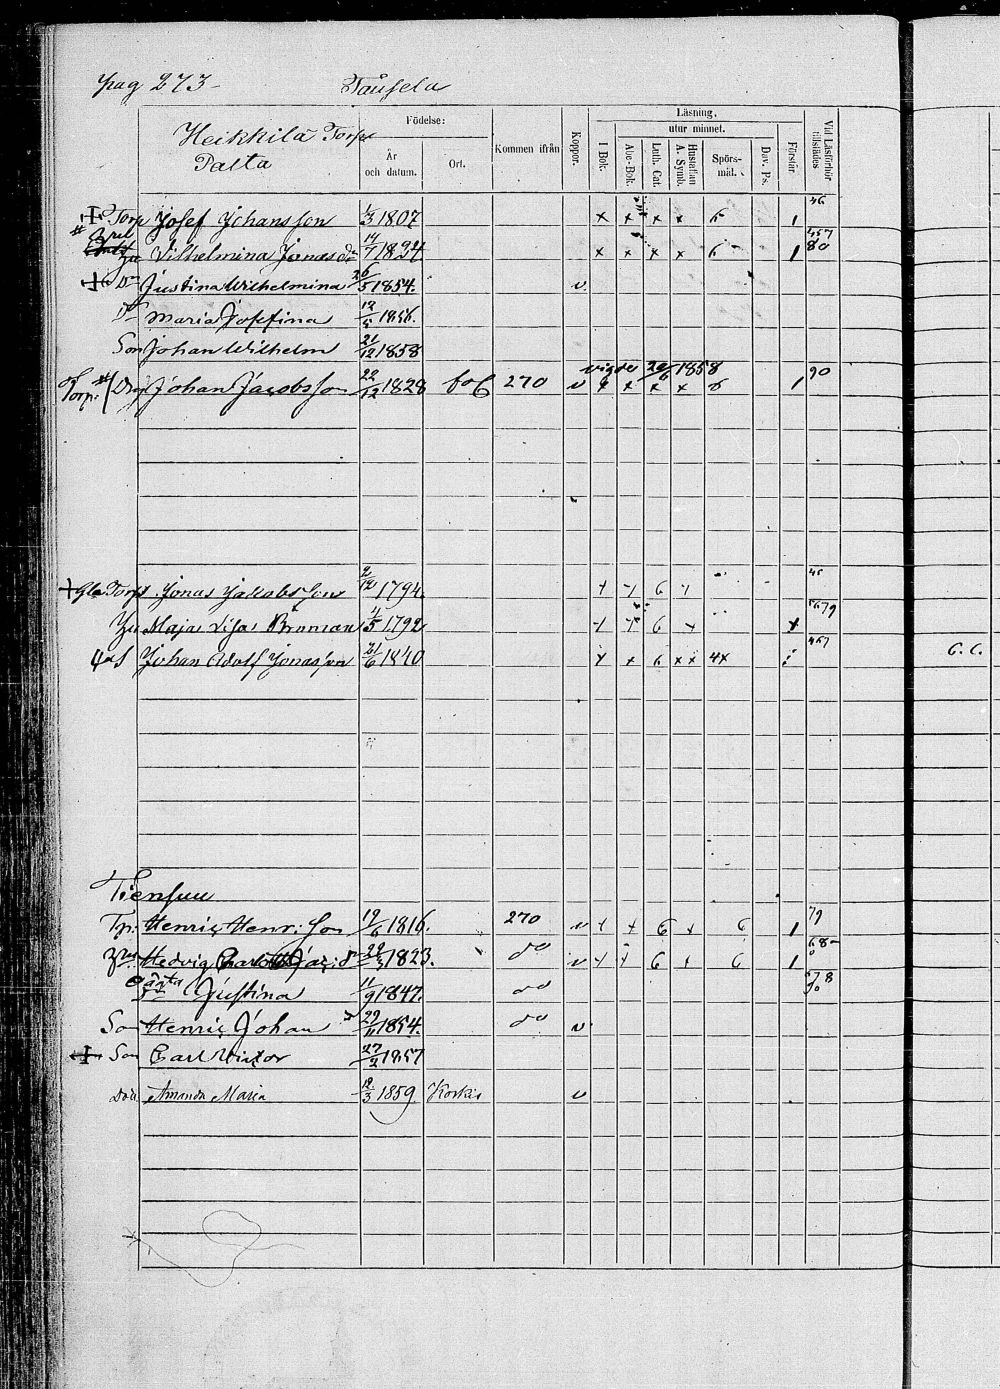 pag 273 Taufela
Heikkilä Torp
Palta
Födelse:
År och datum.
Ort.
Kommen ifrån
Koppor.
Läsning,
utur minnet.
I Bok.
Abc-Bok.
Luth. Cat.
Hustaflan A. Symb.
Spörsmål.
Dav. Ps.
Förstår.
Vid Läsförhör tillstädes
Torp Josef Johansson 1/3 1807 x x x x 6 1 56
Vilhelmina Jonasdr 14/7 1824 x x x x 6 1 80
Dr Justina Wilhelmina 26/5 1854. v.
Dr Maria Josefina 1856.
Son Johan Wilhelm 21/12 1858
vigde 1858
Torp: Johan Jacobsson 22/12 1828 270 v x x x 6 1 90
Gla Torp Jonas Jakobsson 1794.
Maja Lisa Broman 1/5 1792 6 5679
Johan Adolf Jonasson 21/6 1840 x 6 x x 4x 467 6. 6.
Tiensuu
Tp: Henric Henr: Son 19/6 1816. 270 v 6 6 1 79
Hedvig 1823. do v 6 6 1 68
Justina 11/9 1847. do
Son Henric Johan 29/11 1854. do v.
Son Carl Victor 27/2 1857
Amanda Maria 12/3 1859 Koskis v